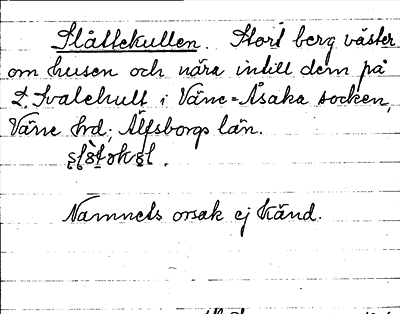 Slåttekullen. Stort berg väster
om husen och nära intill dem på
L. Svalehult i Väne-Åsaka socken,
Väne hrd; Älfsborgs län.
Namnets orsak ej känd.